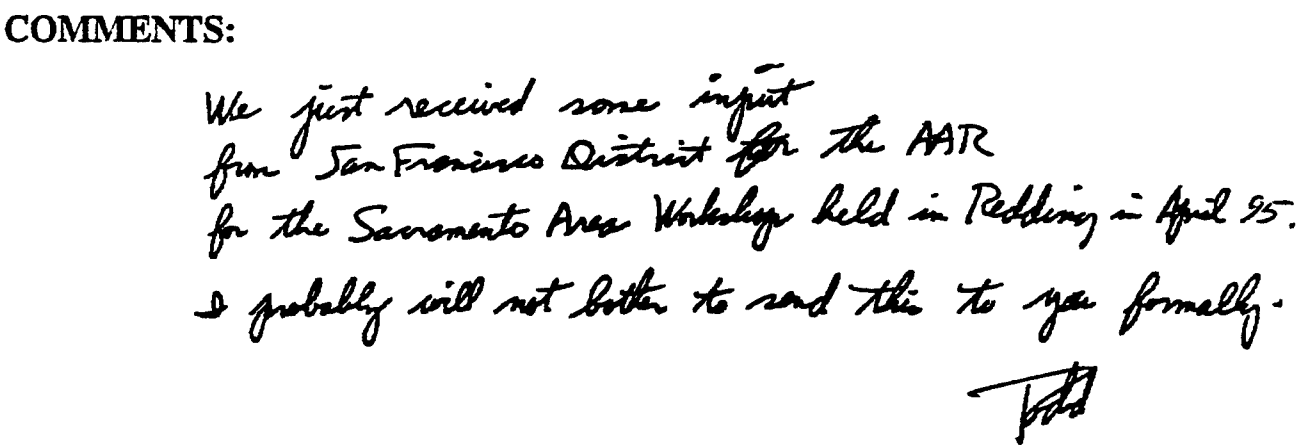 COMMENTS:
We just received some input
from San Francisco District for the AAR
for the Sacramento Area Workshop held in Redding in April 95.
I probably will not bother to send this to you formally.
Todd